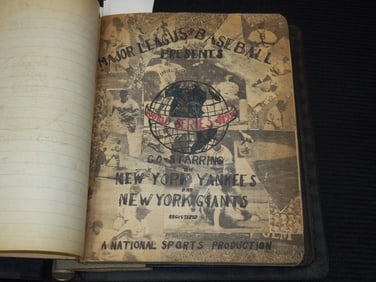 MAJOR LEAGUE BASEBALL
PRESENTS
WORLD SERIES
CO-STARRING
THE
NEW YORK YANKEES
AND
NEW YORK GIANTS
A NATIONAL SPORTS PRODUCTION